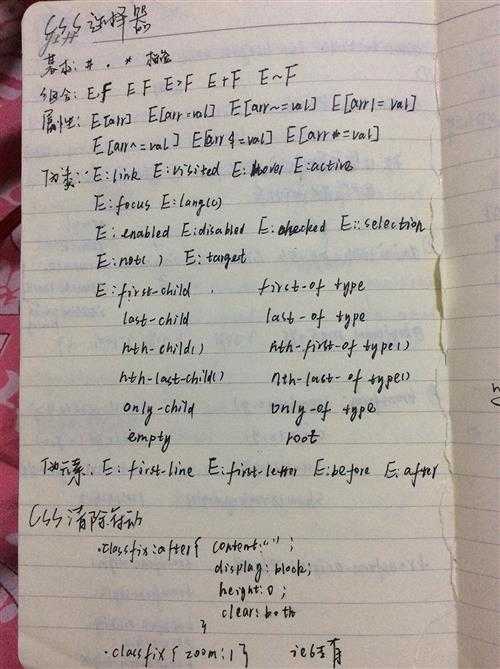 CSS选择器
基本: # . * 标签
组合: E,F E F E>F E+F E~F
属性: E[arr] E[arr=val] E[arr~=val] E[arr|=val]
E[arr^=val] E[arr$=val] E[arr*=val]
伪类: E:link E:visited E:hover E:active
E:focus E:lang(c)
E:enabled E:disabled E:checked E::selection
E:not() E:target
E:first-child first-of type
last-child last-of type
nth-child() nth-first-of type()
nth-last-child() nth-last-of type()
only-child only-of type
empty root
伪元素: E:first-line E:first-letter E:before E:after
CSS清除浮动
.classfix:after{ content:"";
display:block;
height:0;
clear:both
}
.classfix{zoom:1} ie6